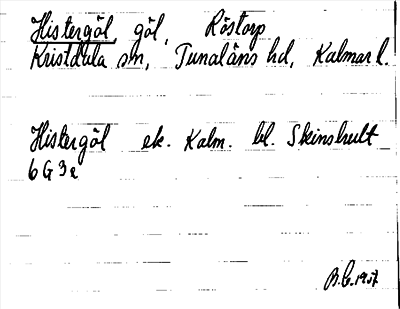 Histergöl, göl, Röstorp
Kristdala sn, Tunaläns hd, Kalmar l.
Histergöl ek. Kalm. bl. Skinshult
6 G 3 e
B.C. 1957